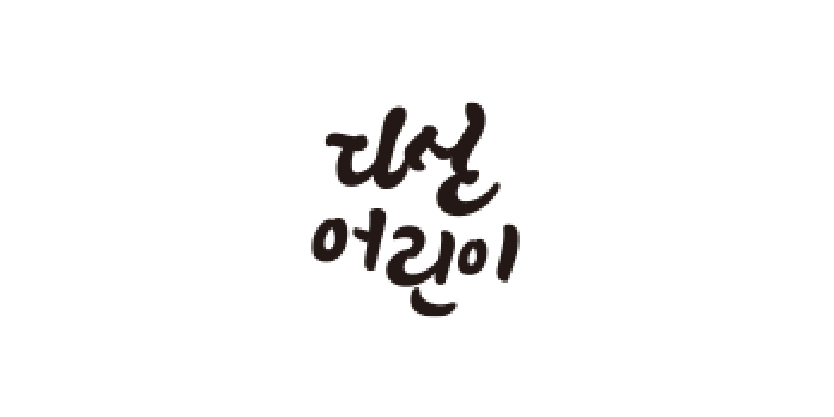 다산
어린이